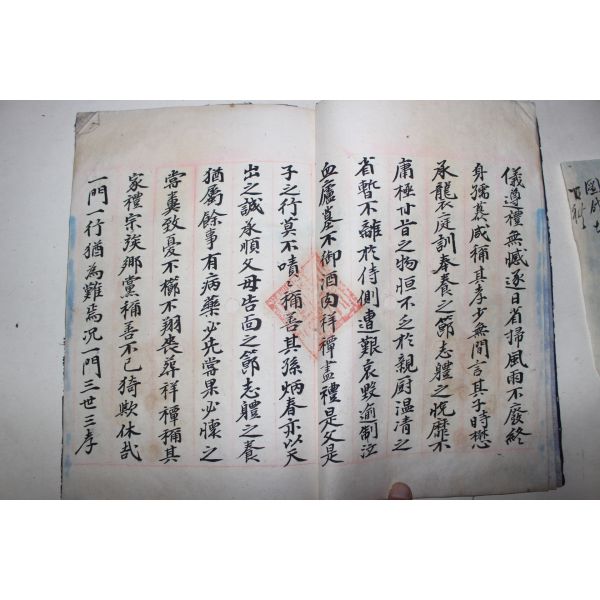 儀遵禮無憾逐日省掃風雨不廢終
身孺慕咸稱其孝少無間言其子時懋
承龍於庭訓奉養之節志軆之悅靡不
庸極甘旨之物恒不乏於親厨温清之
省暫不離於侍側遭艱哀毀逾制泣
血廬墓不御酒肉祥禫盡禮是父是
子之行莫不嘖〻稱善其孫炳春亦以天
出之誠承順父母告面之節志軆之養
猶屬餘事有病藥必先嘗果必懷之
嘗糞致憂不櫛不翔喪葬祥禫稱其
家禮宗族鄉黨稱善不已猗歟休哉
一門一行猶為難焉况一門三世三孝